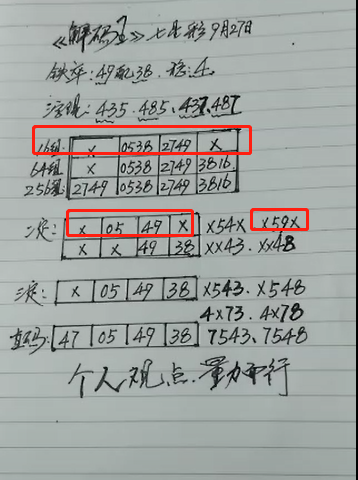 《解码王》七星彩9月27日
铁率:49配38.稳:4.
395:435.485.437.487
16组: X 0538 2749 X
64组 X 0538 2749 3816
256组: 2749 0538 2749 3816
二定: X 05 49 X X54X X59X
X X 49 38 XX43.XX48
三定: X 05 49 38 X543.X548
4X73.4X78
直码: 47 05 49 38 7543,7548
个人观点.量力而行